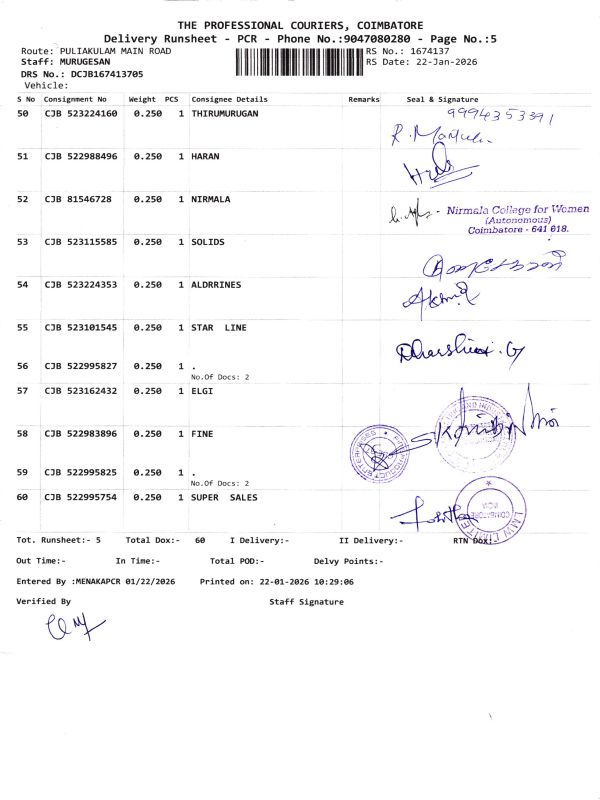 THE PROFESSIONAL COURIERS, COIMBATORE
Delivery Runsheet - PCR - Phone No.:9047080280 - Page No.:5
Route: PULIAKULAM MAIN ROAD RS No.: 1674137
Staff: MURUGESAN RS Date: 22-Jan-2026
DRS No.: DCJB167413705
Vehicle:
S No Consignment No Weight PCS Consignee Details Remarks Seal & Signature
50 CJB 523224160 0.250 1 THIRUMURUGAN 9994353391
51 CJB 522988496 0.250 1 HARAN
52 CJB 81546728 0.250 1 NIRMALA
Nirmala College for Women
(Autonomous)
Coimbatore - 641 018.
53 CJB 523115585 0.250 1 SOLIDS
54 CJB 523224353 0.250 1 ALDRRINES
55 CJB 523101545 0.250 1 STAR LINE
Dharshini. G
56 CJB 522995827 0.250 1 .
No.Of Docs: 2
57 CJB 523162432 0.250 1 ELGI
58 CJB 522983896 0.250 1 FINE
59 CJB 522995825 0.250 1 .
No.Of Docs: 2
60 CJB 522995754 0.250 1 SUPER SALES
Tot. Runsheet:- 5 Total Dox:- 60 I Delivery:- II Delivery:- RTN Dox:-
Out Time:- In Time:- Total POD:- Delvy Points:-
Entered By :MENAKAPCR 01/22/2026 Printed on: 22-01-2026 10:29:06
Verified By Staff Signature